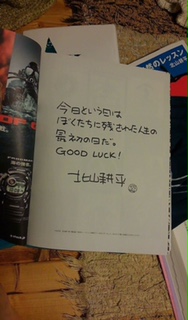 今日という日は
ぼくたちに残された人生の
最初の日だ。
GOOD LUCK!
北山耕平
のレッスン
北山耕平